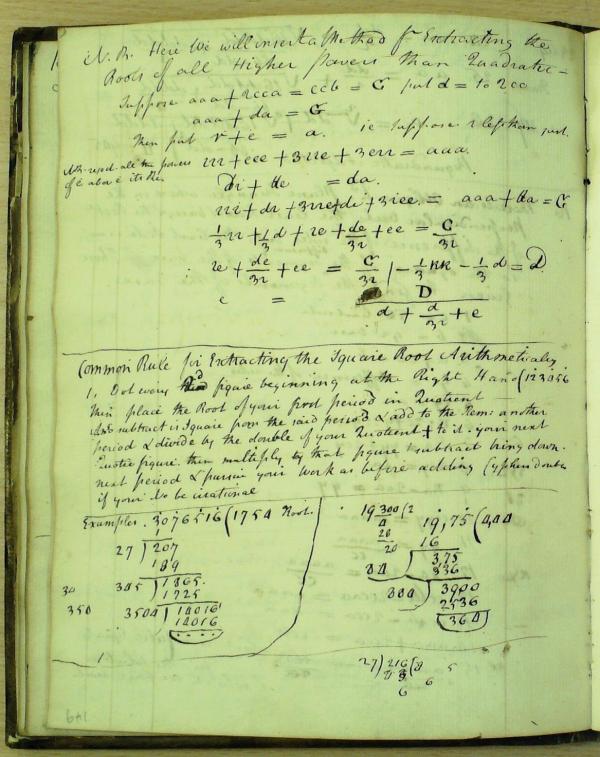 N.B. Here We will insert a Method for Extracting the
Roots of all Higher Powers than Quadratic –
Suppose aaa + 2cca = ccb = G put d = to 2cc
aaa + da = G
Then put r + e = a. ie suppose r less than
rrr + eee + 3rre + 3err = aaa.
all the powers
of e above its
Dr + de = da.
rrr + dr + 3rre + de + 3ree = aaa + da = G
1/3 rr + 1/3 d + re + de/3r + ee = G/3r
re + de/3r + ee = G/3r – 1/3 RR – 1/3 d = D
e = D
d + d/3r + e
Common Rule for Extracting the Square Root Arithmetically
1. Dot every 2d figure beginning at the Right Hand (123056
then place the Root of your first period in Quotient –
and subtract is Square from the said period & add to the Rem: another
period & divide by the double of your Quotient + to it your next
Quotie figure. then multiply by that figure & subtract bring down.
next period & pursue your work as before adding Cyphers double
if your No be irrational
Examples. 3076516 (1754 Root.
1
27 ) 207
189
30 345 ) 1865.
1725
350 3504 ) 14016
14016
....
19300 (2
4
20
20
19,75 (4,44
16
84 ) 3,75
336
884 ) 3900
2536
364
27 ) 216 (8 5
6 6
149